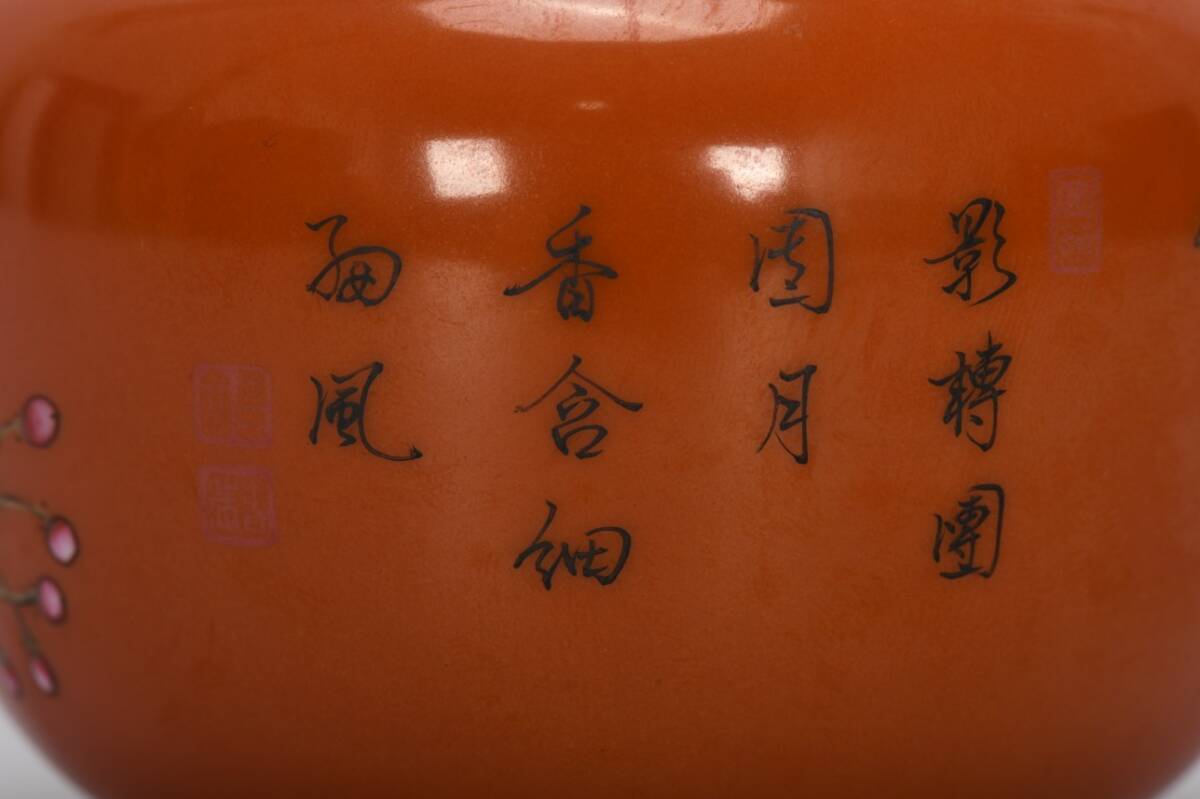 影轉團
團月
香含細
細風